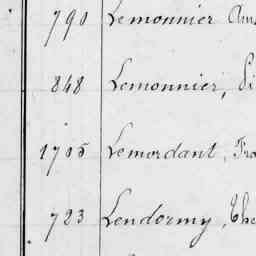 790 Lemonnier
848 Lemonnier,
1705 Lemordant,
723 Lendormy,